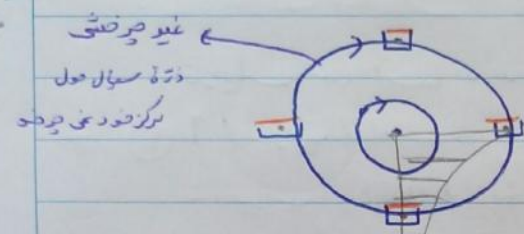 غیر چرخشی
ذرهٔ سیال حول
مرکز خود نمی چرخد